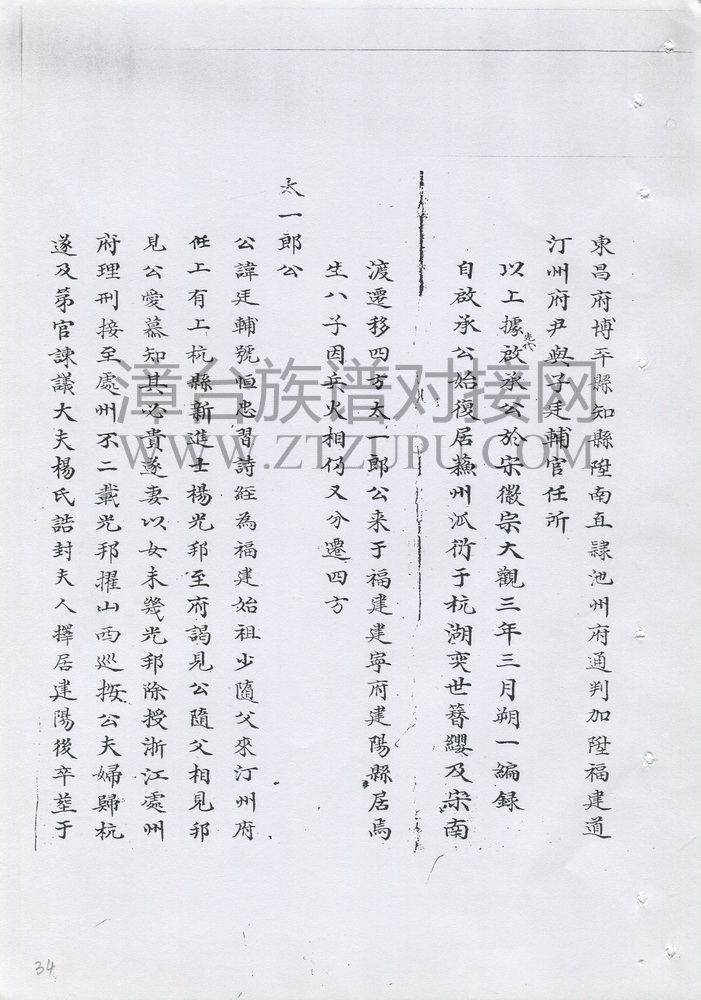 東昌府博平縣知縣陞南直隸池州府通判加陞福建道
汀州府尹與子廷輔官任所
以上據先代啟承公於宋徽宗大觀三年三月朔一編録
自啟承公始復居蘇州派衍于杭湖奕世簪纓及宋南
渡遷移四方太一郎公来于福建建寧府建陽縣居焉
生八子因兵火相仍又分遷四方
太一郎公
公諱廷輔號恒忠習詩經為福建始祖少隨父來汀州府
任上有上杭縣新進士楊光邦至府謁見公隨父相見邦
見公愛慕知其必貴遂妻以女未幾光邦除授浙江處州
府理刑接至處州不二載光邦擢山西巡按公夫婦歸杭
遂及第官諫議大夫楊氏誥封夫人擇居建陽後卒塟于
漳台族谱对接网
WWW.ZTZUPU.COM
34